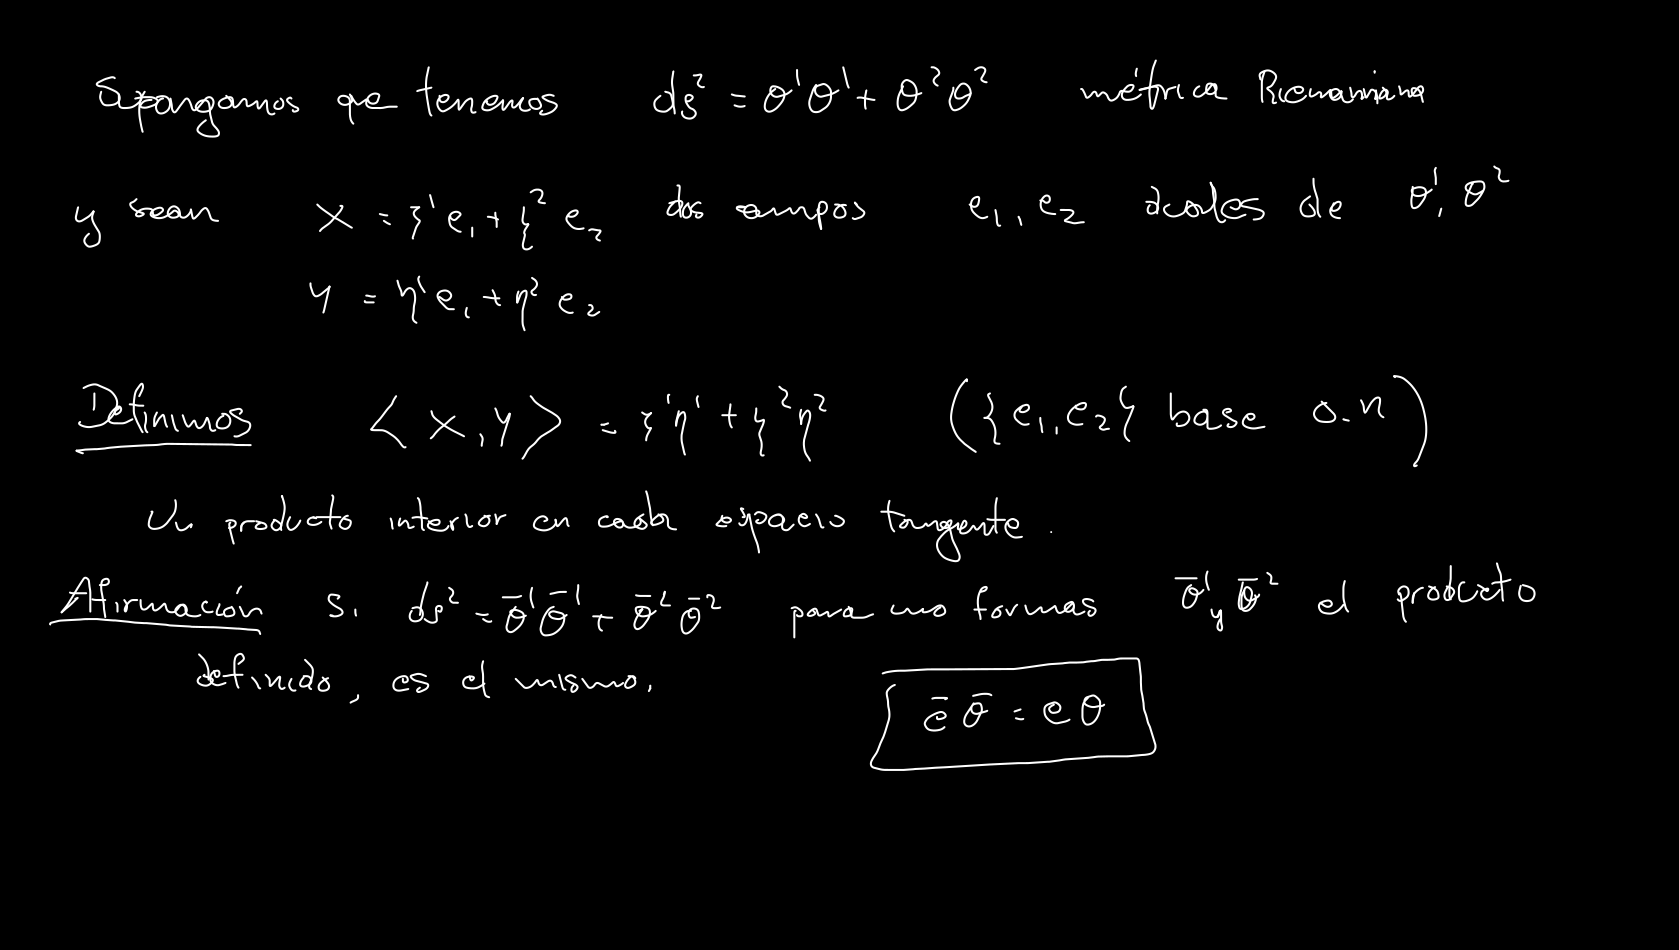 Supongamos que tenemos ds² = θ¹θ¹ + θ²θ² métrica Riemanniana
y sean X = ξ¹e₁ + ξ²e₂ dos campos e₁, e₂ duales de θ¹, θ²
Y = η¹e₁ + η²e₂
Definimos ⟨X, Y⟩ = ξ¹η¹ + ξ²η² ({e₁, e₂} base o.n)
Un producto interior en cada espacio tangente.
Afirmación Si ds² = θ̄¹θ̄¹ + θ̄²θ̄² para uno formas θ̄¹ y θ̄² el producto
definido, es el mismo.
ē θ̄ = e θ